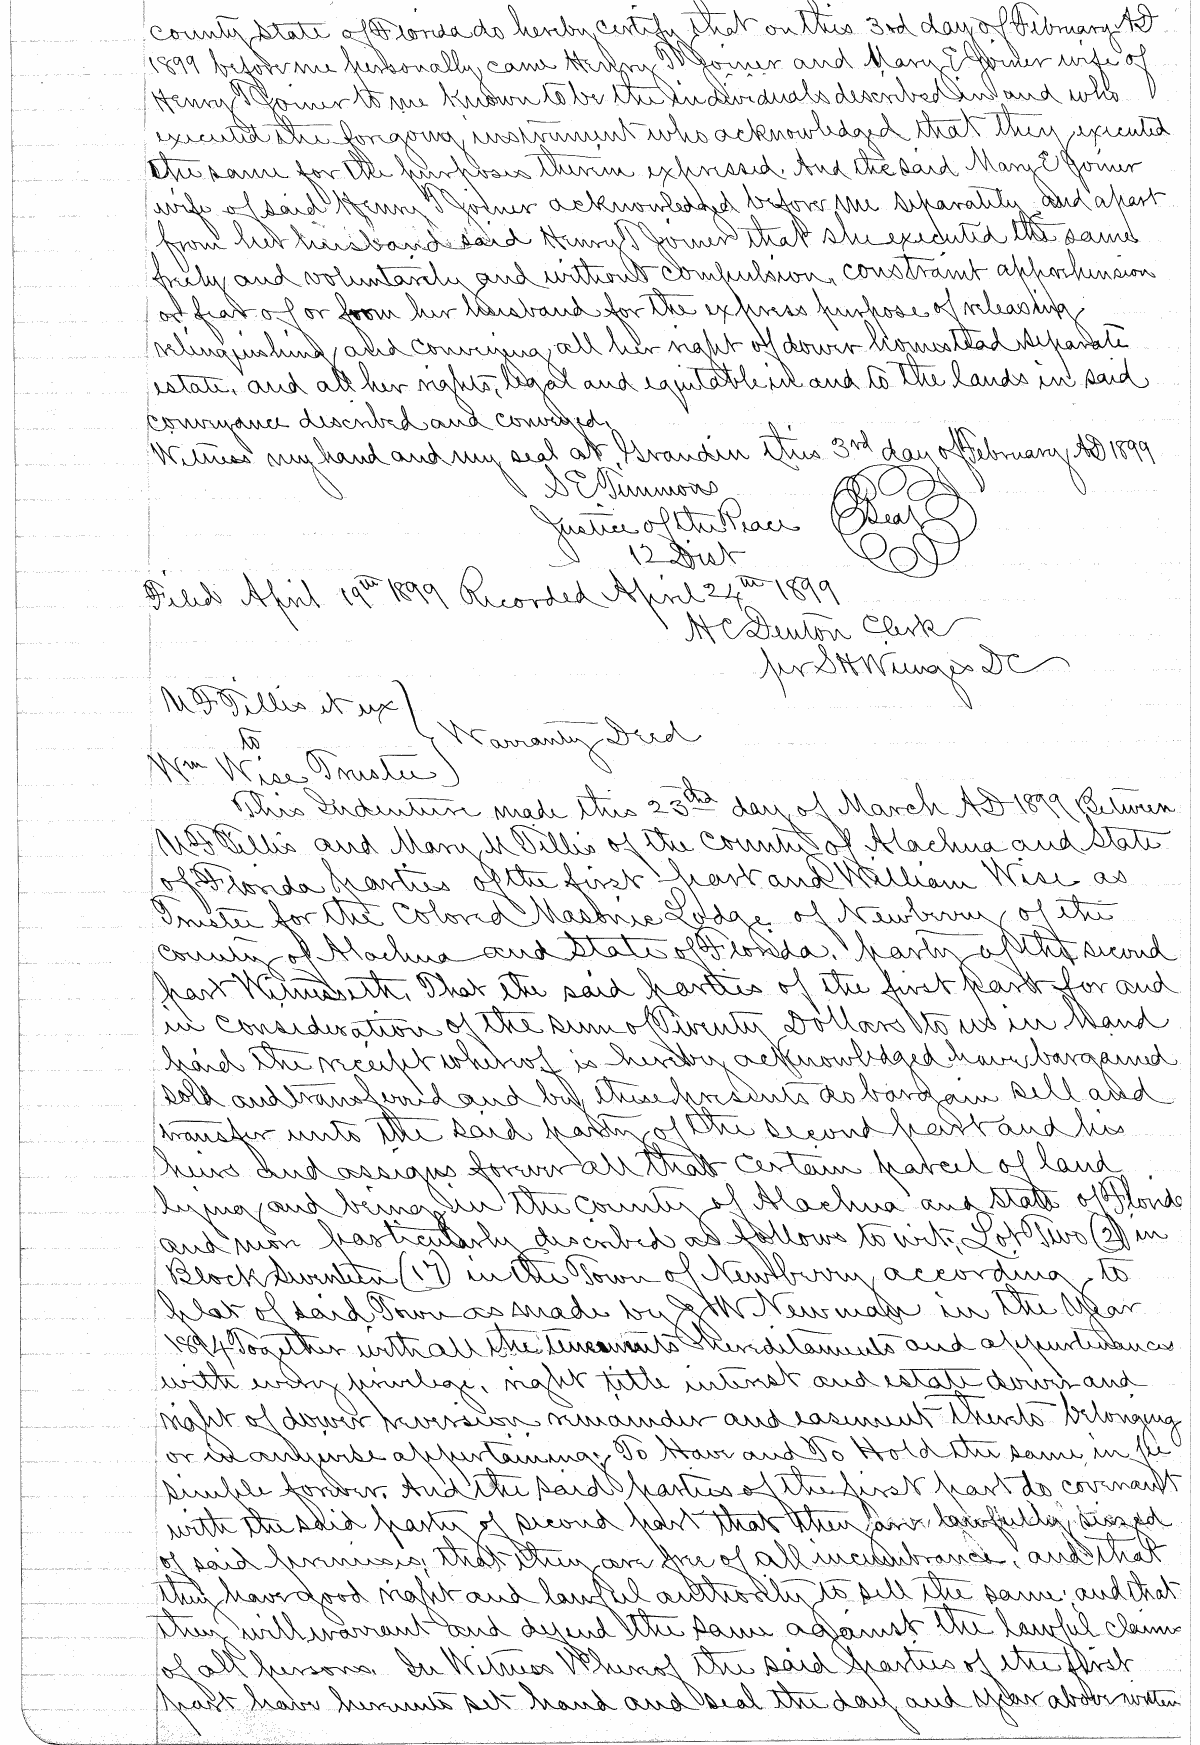 county State of Florida do hereby certify that on this 3rd day of February AD
1899 before me personally came Henry T Joiner and Mary E Joiner wife of
Henry T Joiner to me known to be the individuals described in and who
executed the forgoing instrument who acknowledged that they executed
the same for the purposes therein expressed. And the said Mary E Joiner
wife of said Henry T Joiner acknowledged before me separately and apart
from her husband said Henry T Joiner that she executed the same
freely and voluntarily and without compulsion, constraint apprehension
or fear of or from her husband for the express purpose of releasing
relinquishing and conveying all her right of dower homestead separate
estate, and all her rights, legal and equitable in and to the lands in said
conveyance described and conveyed,
Witness my hand and my seal at Grandin this 3rd day of February AD 1899
S E Timmons
Justice of the Peace Seal
12 Dist
Filed April 19th 1899 Recorded April 24th 1899
H C Denton Clerk
per S H Wienges DC
N F Tillis et ux
to Warranty Deed
Wm Wise Trustee
This Indenture made this 23rd day of March AD 1899 Between
Tillis and Mary M Tillis of the county of Alachua and State
of Florida parties of the first part and William Wise as
Trustee for the Colored Masonic Lodge of Newberry of the
county of Alachua and State of Florida, party of the second
part Witnesseth, That the said parties of the first part for and
in consideration of the sum of Twenty Dollars to us in hand
paid the receipt whereof is hereby acknowledged have bargained
sold and transferred and by these presents do bargain sell and
transfer unto the said party of the second part and his
heirs and assigns forever all that certain parcel of land
lying and being in the county of Alachua and state of Florida
and more particularly described as follows to wit; Lot Two (2) in
Block Seventeen (17) in the Town of Newberry according to
plat of said Town as made by J W Newman in the Year
1894 Together with all the tenements hereditaments and appurtenances
with every privilege, right title interest and estate dower and
right of dower reversion remainder and easement thereto belonging
or in anywise appertaining; To Have and To Hold the same in fee
simple forever. And the said parties of the first part do covenant
with the said party of second part that they are lawfully seized
of said premises; that they are free of all incumbrance, and that
they have good right and lawful authority to sell the same; and that
they will warrant and defend the same against the lawful claims
of all persons. In Witness Whereof the said parties of the first
part have hereunto set hand and seal the day and year above written